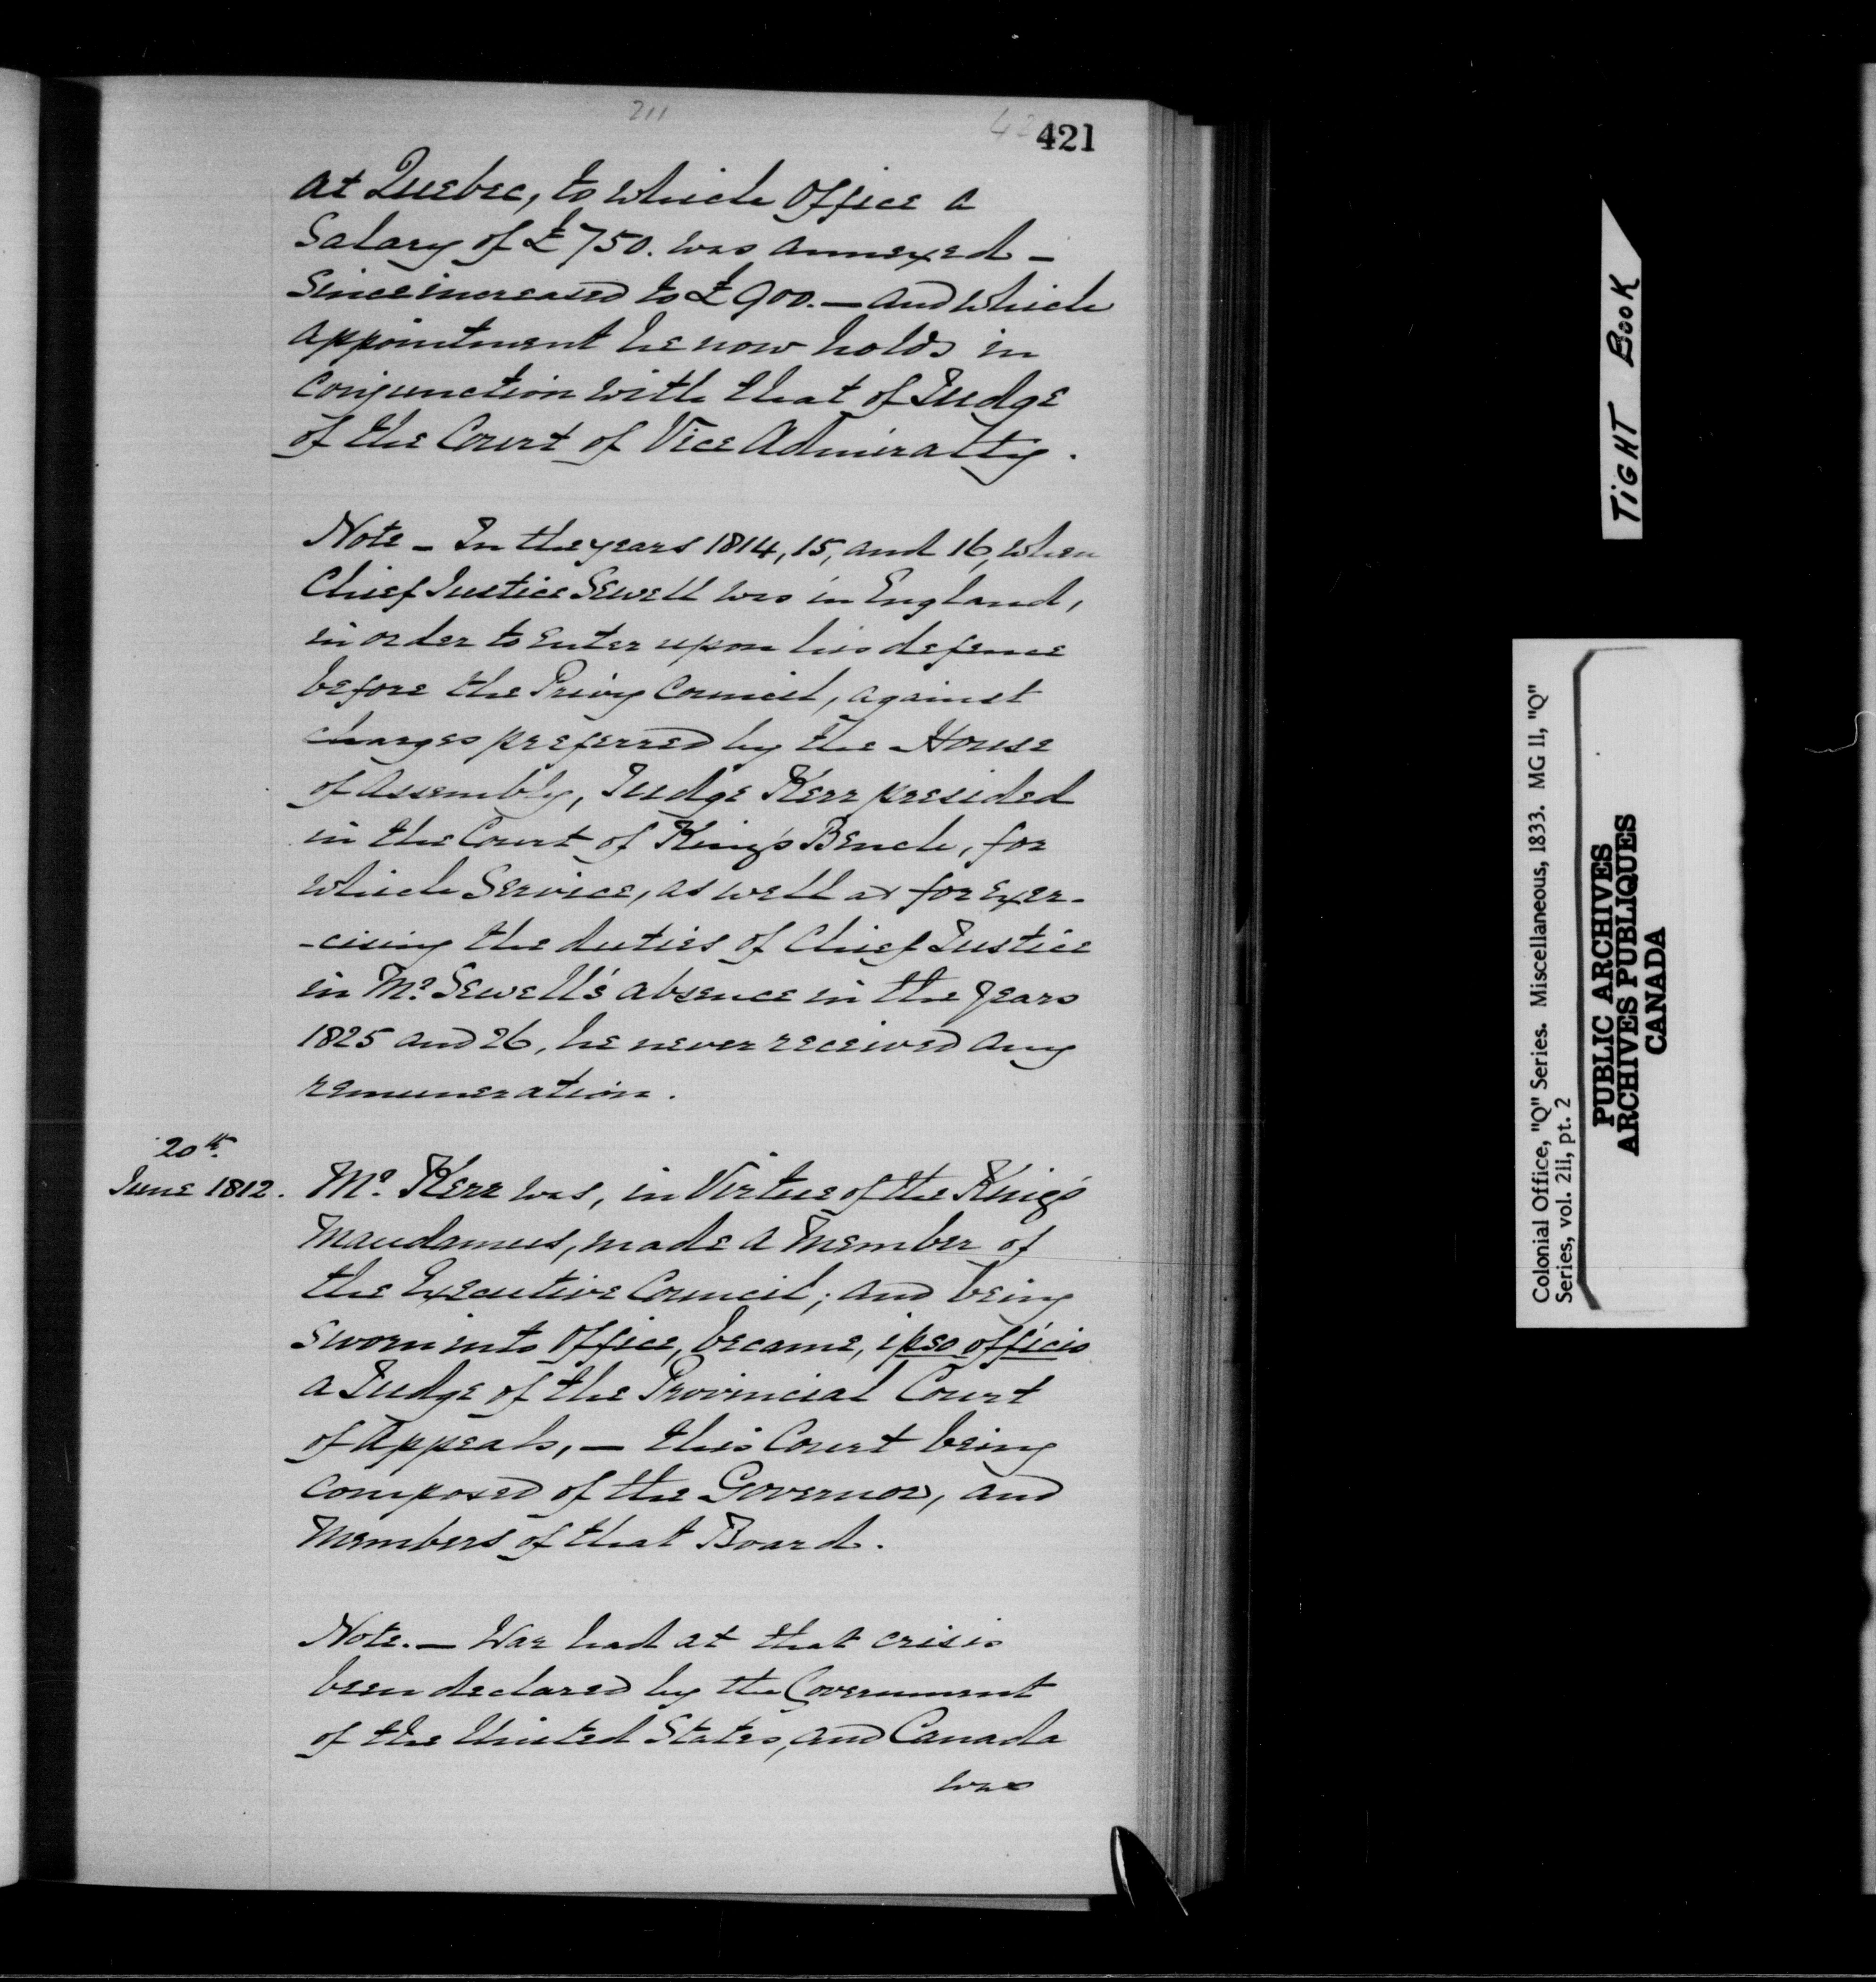 211
421
at Quebec, to which Office a
Salary of £750. was annexed —
Since increased to £900. — and which
appointment he now holds in
conjunction with that of Judge
of the Court of Vice Admiralty.
Note — In the years 1814, 15, and 16, when
Chief Justice Sewell was in England,
in order to enter upon his defence
before the Privy Council, against
charges preferred by the House
of Assembly, Judge Kerr presided
in the Court of King's Bench, for
which Service, as well as for exer-
-cising the duties of Chief Justice
in Mr. Sewell's absence in the years
1825 and 26, he never received any
remuneration.
20th.
June 1812.
Mr. Kerr was, in Virtue of the King's
Mandamus, made a Member of
the Executive Council; and being
sworn into Office, became, ipso officio
a Judge of the Provincial Court
of Appeals, — this Court being
composed of the Governor, and
Members of that Board.
Note. — War had at that crisis
been declared by the Government
of the United States, and Canada
was
TIGHT BOOK
Colonial Office, "Q" Series. Miscellaneous, 1833. MG 11, "Q"
Series, vol. 211, pt. 2
PUBLIC ARCHIVES
ARCHIVES PUBLIQUES
CANADA